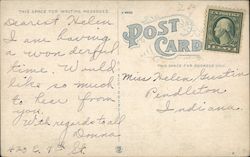 THIS SPACE FOR WRITING MESSAGES.
Dearest Helen
I am having
a wonderful
time. Would
like so much
to hear from
you.
With regards to all
Donna
420 E. 9th St.
POST
CARD
Miss Helen Gustin
Pendleton
Indiana.
THIS SPACE FOR ADDRESS ONLY.